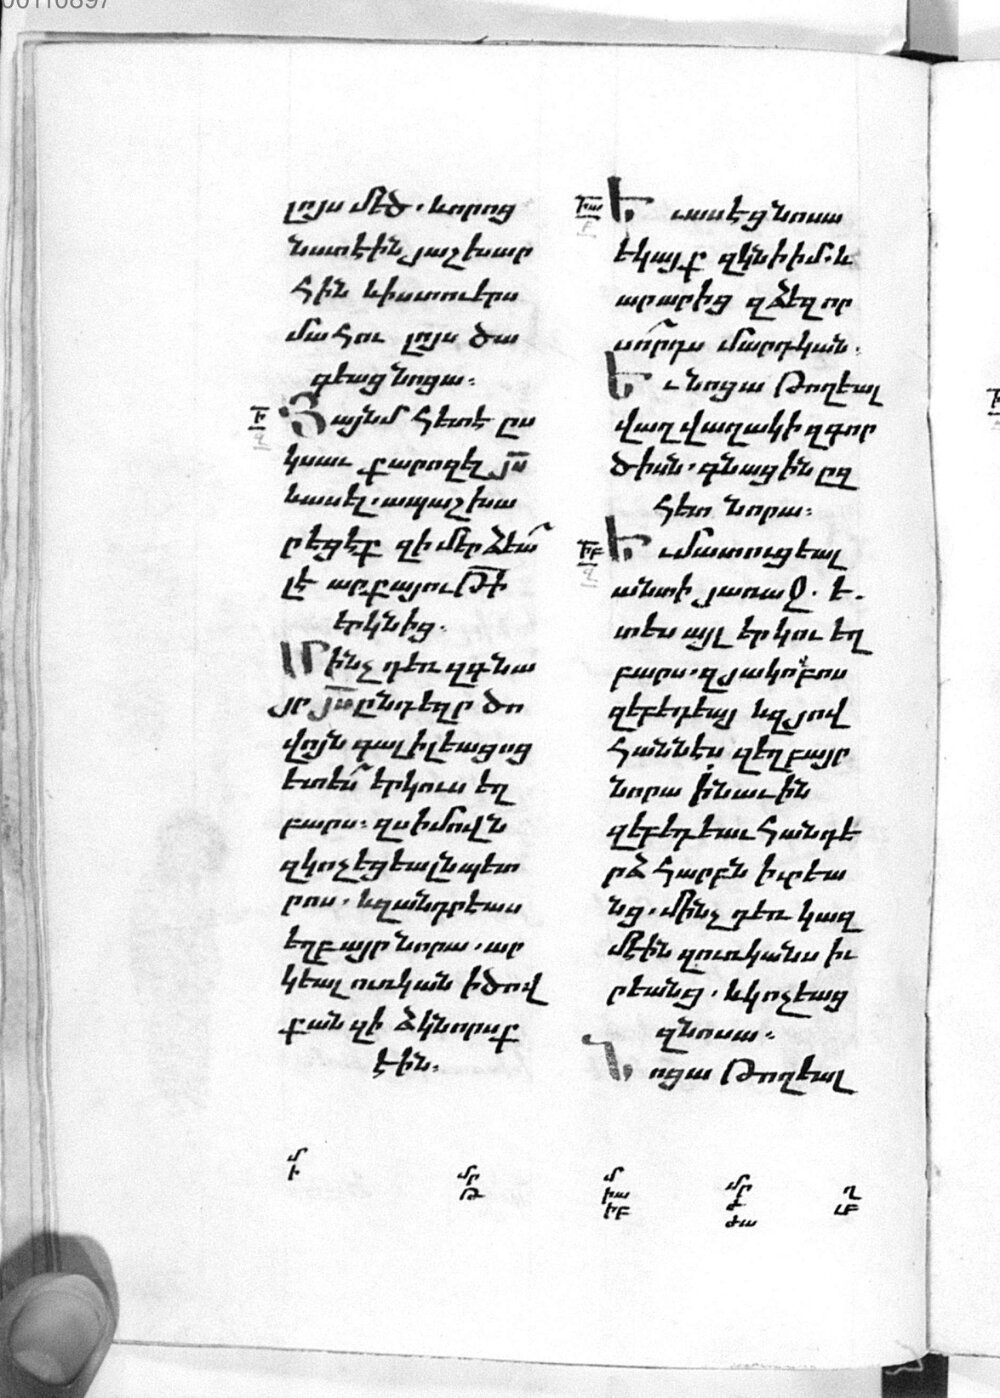 լոյս մեծ. և որոց
նստէին յաշխար
հին և ի ստուերս
մահու լոյս ծա
գեաց նոցա։
Յայնմ հետէ ըս
կսաւ քարոզել յս
և ասել. ապաշխա
րեցէք զի մերձեա՟
լէ արքայութի
երկնից։
Մինչ դեռ զգնա
յր յս ընդ եզր ծո
վուն գալիլեացոց
ետես՟ երկուս եղ
բարս. զսիմովն
զկոչեցեալն պետ
րոս. և զանդրէաս
եղբայր նորա. ար
կեալ ուռկան ի ծով
քանզի ձկնորսք
էին։
Եւ ասէ ցնոսա
եկայք զկնի իմ. և
արարից զձեզ որ
սո՟րդս մարդկան.
Եւ նոցա թողեալ
վաղվաղակի զգոր
ծիսն. գնացին ըզ
հետ նորա։
Եւ մատուցեալ
անտի յառաջ. ե.
տես այլ երկու եղ
բարս. զյակոբոս
զեբեդեայ և զյով
հաննէս զեղբայր
նորա ի նաւին
զեբեդեաւ հանդե
րձ հարբն իւրեա
նց. մինչ դեռ կազ
մէին զուռկանս իւ
րեանց. և կոչեաց
զնոսա։
Նոցա թողեալ
մ
ի
մր
թ
մ
իա
իբ
մր
ժ
ժա
ղ
լբ